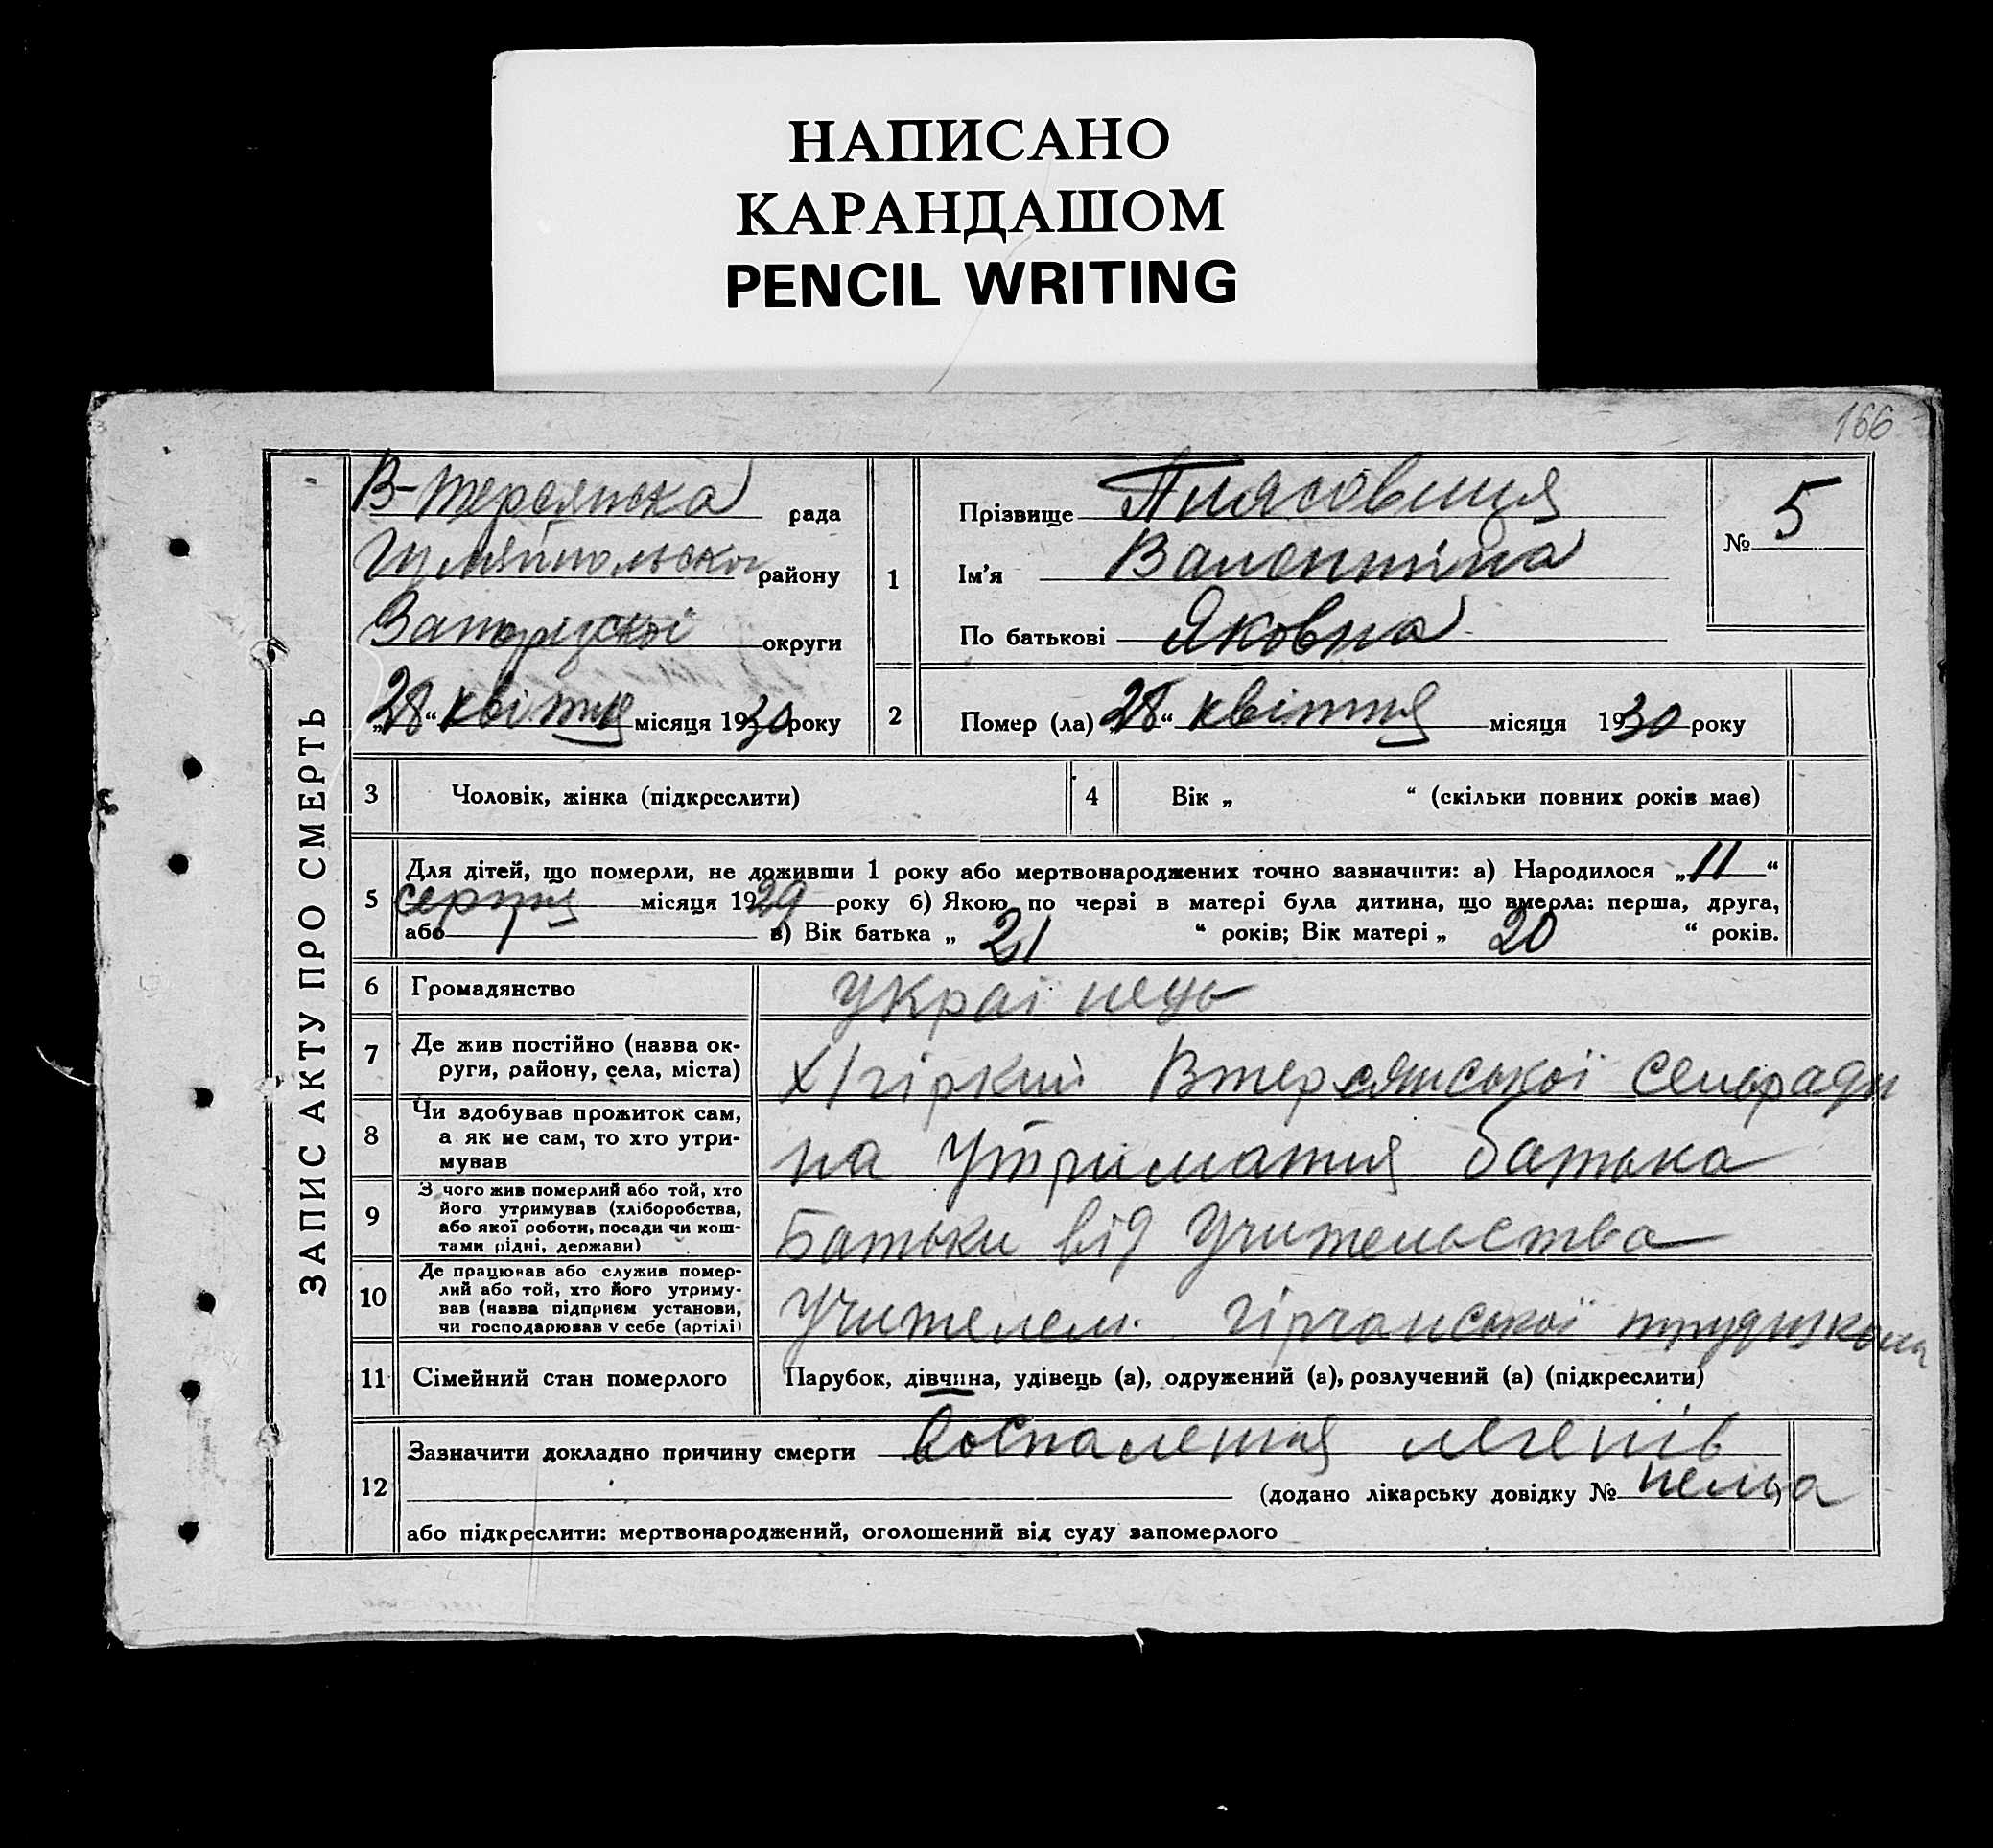 НАПИСАНО
КАРАНДАШОМ
PENCIL WRITING
166
ЗАПИС АКТУ ПРО СМЕРТЬ
В-Терсянська рада
Гуляйпольськог району
Запорізької округи
„28“ квітня місяця 1930 року
1
Прізвище
Ім’я Валентина
По батькові Яковна
№ 5
2 Помер (ла) „28“ квітня місяця 1930 року
3 Чоловік, жінка (підкреслити)
4 Вік „ “ (скільки повних років має)
5 Для дітей, що померли, не доживши 1 року або мертвонароджених точно зазначити: а) Народилося „11“
серпня місяця 1929 року б) Якою по черзі в матері була дитина, що вмерла: перша, друга,
або в) Вік батька „ 21 “ років; Вік матері „ 20 “ років.
6 Громадянство українець
7 Де жив постійно (назва ок-
руги, району, села, міста) х/гіркий Втерсянської сельради
8 Чи здобував прожиток сам,
а як не сам, то хто утри-
мував на утримания батька
9 З чого жив померлий або той, хто
його утримував (хліборобства,
або якої роботи, посади чи кош-
тами рідні, держави) Батьки від Учительства
10 Де працював або служив помер-
лий або той, хто його утриму-
вав (назва підприєм установи,
чи господарював у себе (артілі) Учителем
11 Сімейний стан померлого Парубок, дівчина, удівець (а), одружений (а), розлучений (а) (підкреслити)
12 Зазначити докладно причину смерти Воспаления легенів
(додано лікарську довідку № нема)
або підкреслити: мертвонароджений, оголошений від суду запомерлого